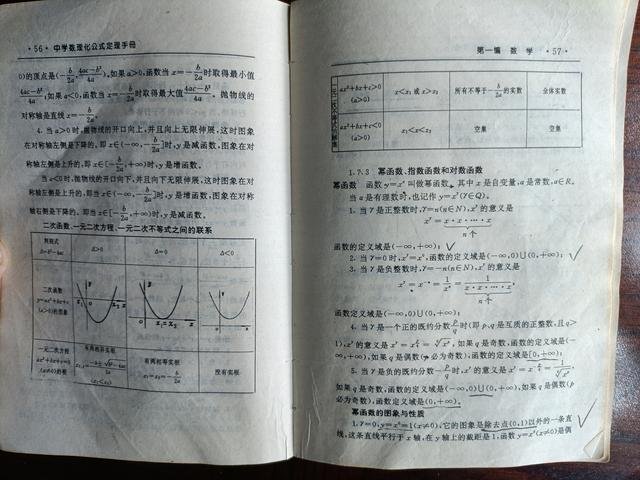 · 56 · 中学数理化公式定理手册
0)的顶点是(-b/2a, 4ac-b²/4a),如果 a>0,函数当 x=-b/2a时取得最小值
4ac-b²/4a;如果 a<0,函数当 x=-b/2a时取最大值4ac-b²/4a。抛物线的
对称轴是直线 x=-b/2a。
4. 当 a>0 时,抛物线的开口向上,并且向上无限伸展,这时图象
在对称轴左侧是下降的,即 x∈(-∞,-b/2a]时,y 是减函数,图象在对
称轴右侧是上升的,即 x∈[-b/2a,+∞)时,y 是增函数。
当 a<0 时,抛物线的开口向下,并且向下无限伸展,这时图象在
对称轴左侧是上升的,即当 x∈(-∞,-b/2a]时,y 是增函数,图象在对称
轴右侧是下降的,即当 x∈[-b/2a,+∞)时,y 是减函数。
二次函数、一元二次方程、一元二次不等式之间的联系
判别式
Δ=b²-4ac
Δ>0
Δ=0
Δ<0
二次函数
y=ax²+bx+c
(a>0)的图象
y
x₁
0
x₂
x
y
0
x₁=x₂
x
一元二次方程
ax²+bx+c=0
(a≠0)的根
有两相异实根
(x₁<x₂)
有两相等实根
x₁=x₂=-b/2a
没有实根
第一编 数 学 · 57 ·
ax²+bx+c>0
(a>0)
x<x₁ 或 x>x₂
所有不等于-b/2a的实数
全体实数
ax²+bx+c<0
(a>0)
x₁<x<x₂
空集
空集
1.7.3 幂函数、指数函数和对数函数
幂函数 函数 y=xᵃ 叫做幂函数,其中 x 是自变量,a 是常数,a∈R。
当 a 是有理数时,也记作 y=xʳ(r∈Q)。
1. 当 r 是正整数时,r=n(n∈N),xʳ的意义是
xʳ=x·x·…·x
n个
函数的定义域是(-∞,+∞);
2. 当 r=0 时,xʳ=x⁰,函数的定义域是(-∞,0)∪(0,+∞);
3. 当 r 是负整数时,r=-n(n∈N),xʳ 的意义是
xʳ=x⁻ⁿ=1/xⁿ=1/x·x·…·x
n个
函数定义域是(-∞,0)∪(0,+∞);
4. 当 r 是一个正的既约分数p/q时(即 p、q 是互质的正整数,且 q>
如果 q 是奇数,函数的定义域是(-∞,0)∪(0,+∞),如果 q 是偶数(p
必为奇数),函数定义域是(0,+∞)。
幂函数的图象与性质
1. r=0,y=x⁰=1(x≠0),它的图象是除去点(0,1)以外的一条直
线,这条直线平行于 x 轴,在 y 轴上的截距是 1,函数 y=x⁰(x≠0)是偶